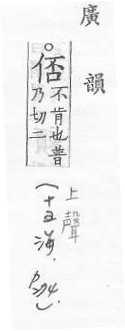 廣韻
。俖不肯也普
乃切二
上聲
(十五海.
P274.)